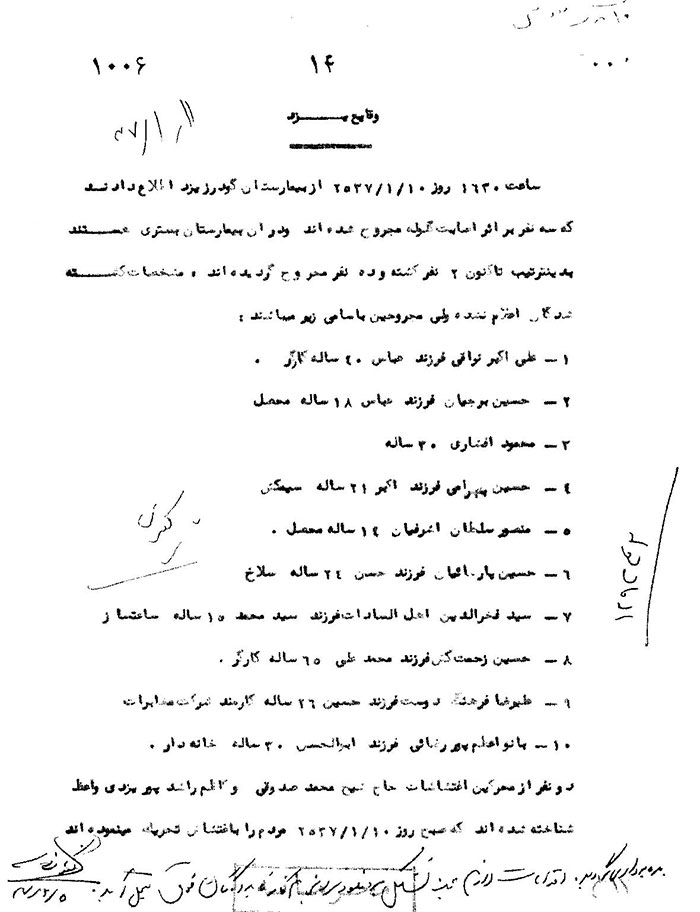 ۱۴
۱۰۰۶
وقایع یزد
ساعت ۱۶۳۰ روز ۲۵۳۷/۱/۱۰ از بیمارستان گودرز یزد اطلاع دادند
که سه نفر بر اثر اصابت گلوله مجروح شده اند ودران بیمارستان بستری هستند
بدینترتیب تاکنون ۲ نفر کشته و ده نفر مجروح گردیده اند ، مشخصات کشته
شدگان اعلام نشده ولی مجروحین باسامی زیر میباشند :
۱ – علی اکبر نواقی فرزند عباس ۴۰ ساله کارگر .
۲ – حسین برجیان فرزند عباس ۱۸ ساله محصل
۳ – محمود افشاری ۳۰ ساله
۴ – حسین بهرامی فرزند اکبر ۲۱ ساله سیمکش
۵ – منصور سلطان اشرفیان ۱۴ ساله محصل .
۶ – حسین پارسائیان فرزند حسن ۲۴ ساله سلاخ
۷ – سید فخرالدین اهل السادات فرزند سید محمد ۱۵ ساله ساعتساز
۸ – حسین زحمتکش فرزند محمد علی ۶۵ ساله کارگر .
۹ – علیرضا فرهنگ دوست فرزند حسین ۲۶ ساله کارمند شرکت مخابرات
۱۰ – بانو اعظم پور رضائی فرزند ابوالحسن ۳۰ ساله خانه دار .
دو نفر از محرکین اغتشاشات حاج شیخ محمد صدوقی و کاظم راشد پور یزدی واعظ
شناخته شده اند که صبح روز ۲۵۳۷/۱/۱۰ مردم را باغتشاش تحریک مینموده اند